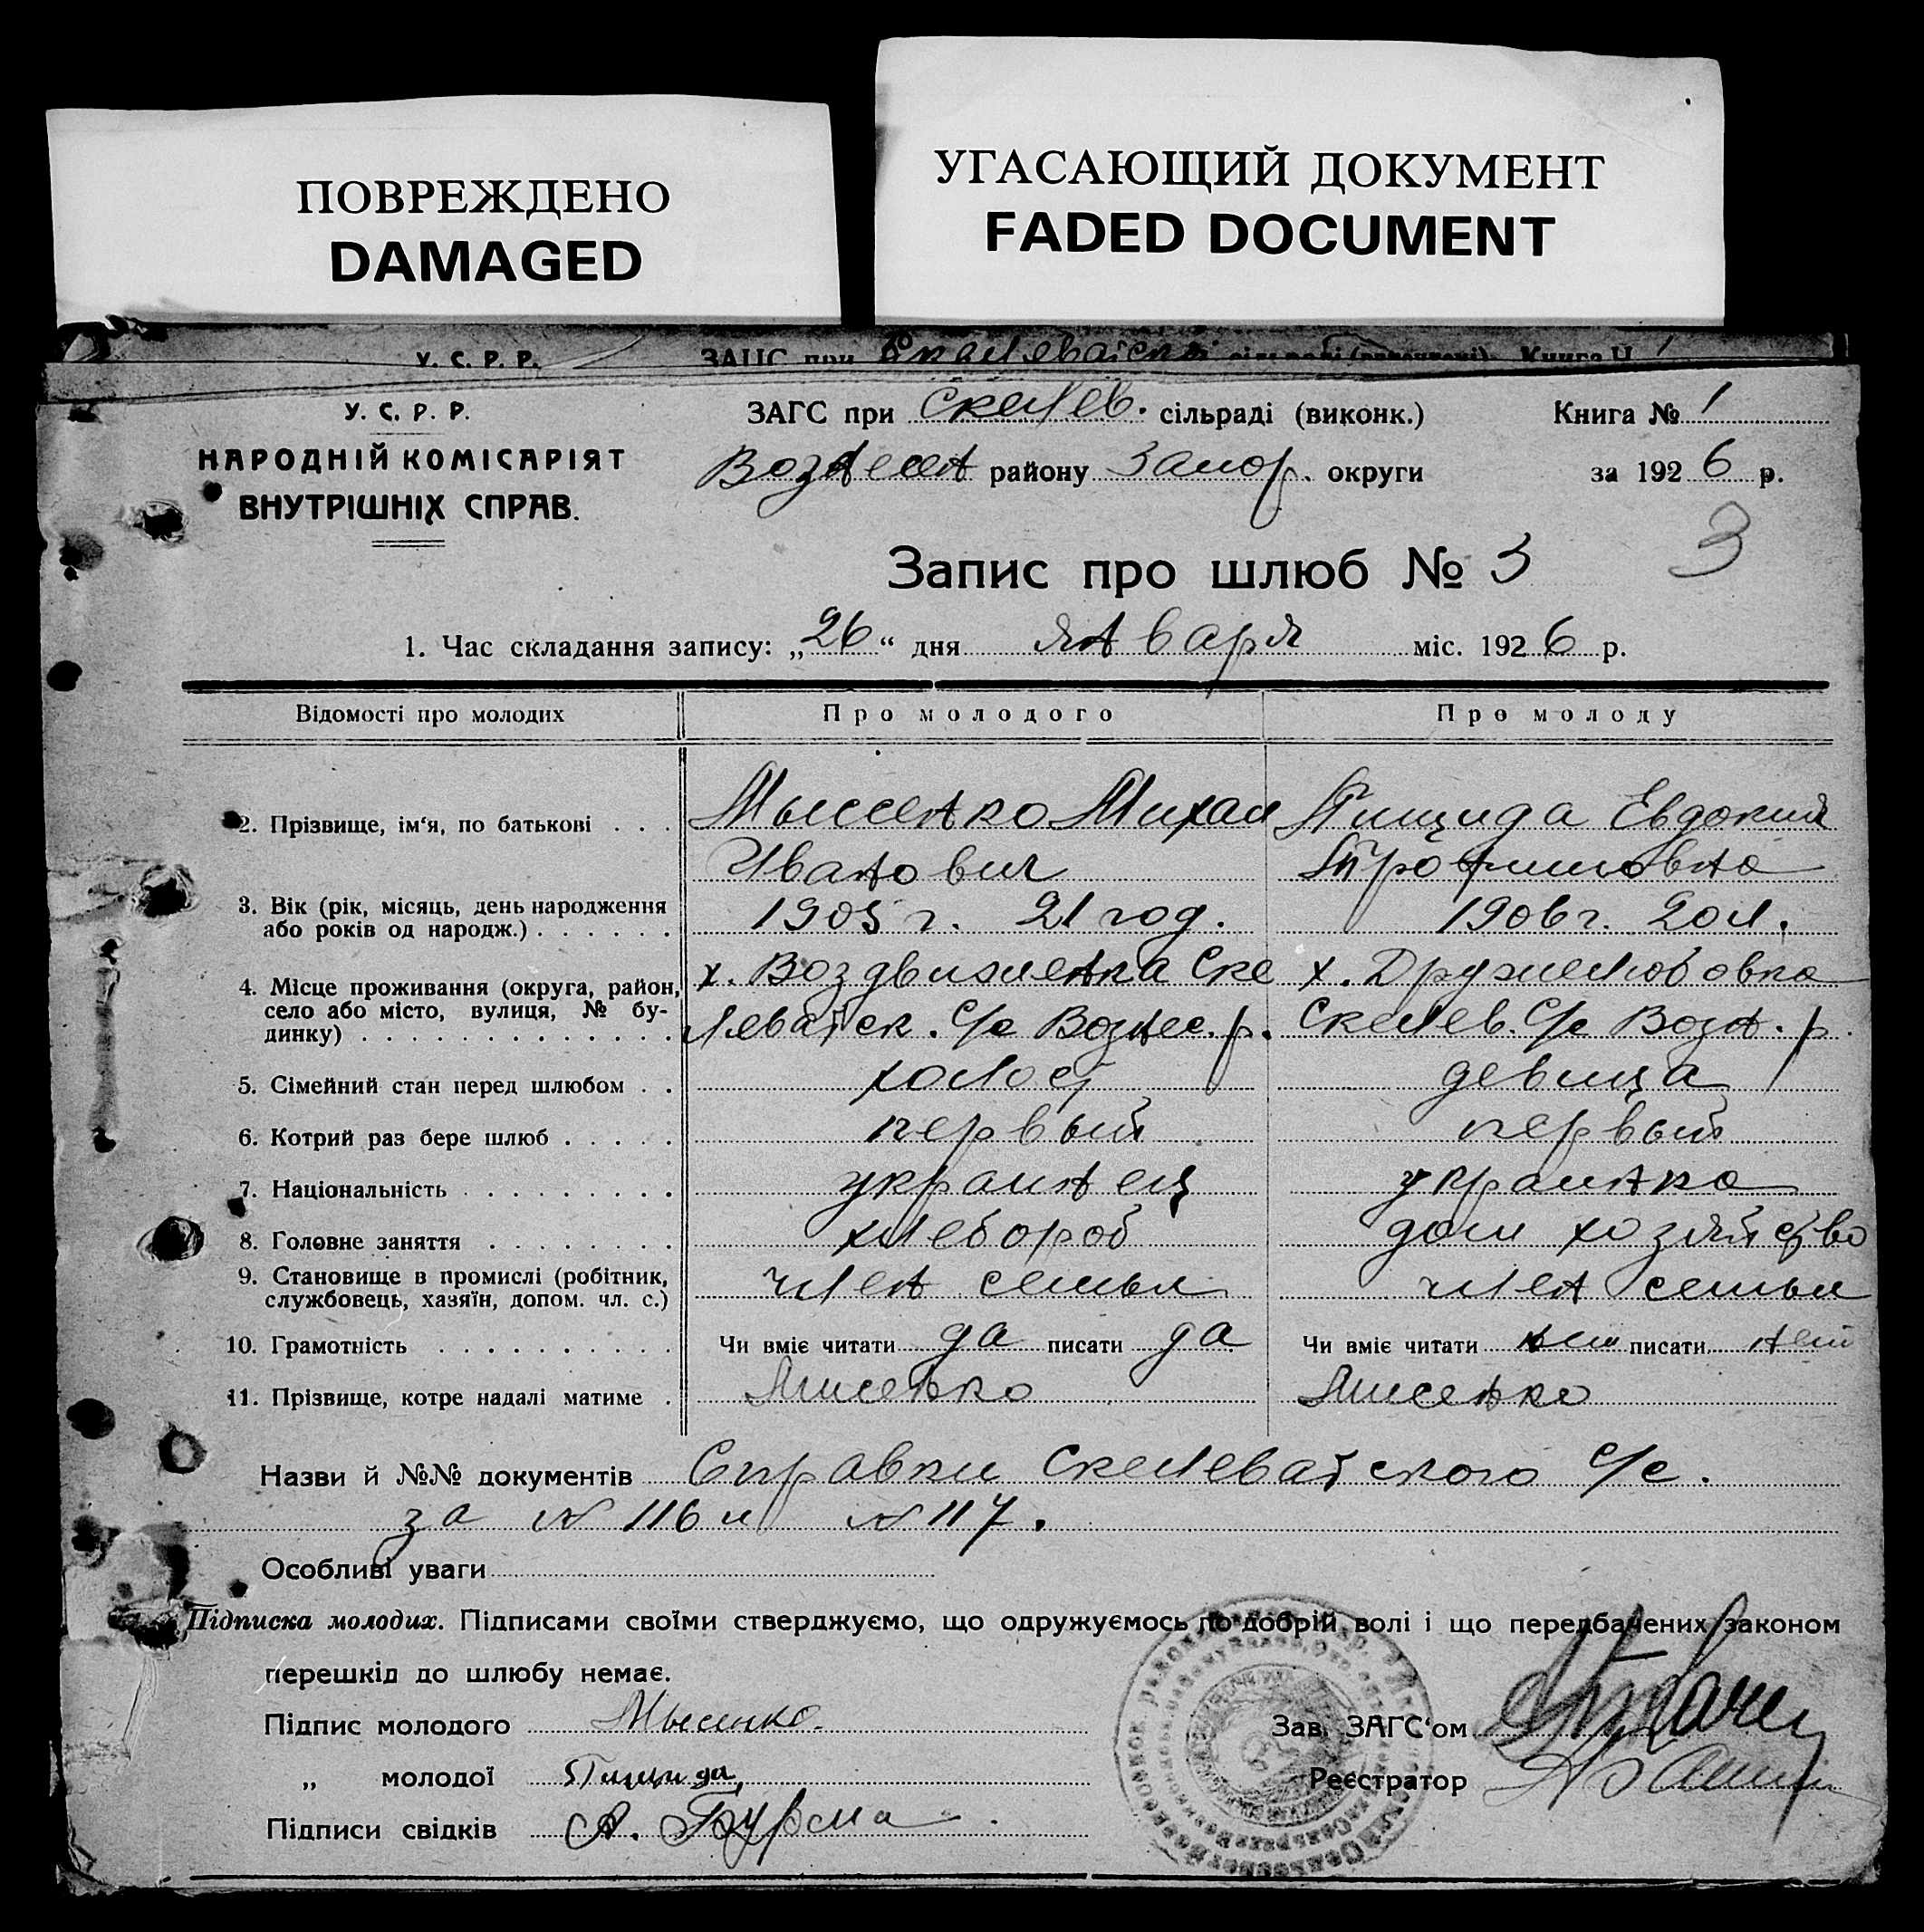 ПОВРЕЖДЕНО
DAMAGED
УГАСАЮЩИЙ ДОКУМЕНТ
FADED DOCUMENT
У. С. Р. Р. ЗАГС при
У. С. Р. Р.
НАРОДНІЙ КОМІСАРІЯТ
ВНУТРІШНІХ СПРАВ.
ЗАГС при Скелев. сільраді (виконк.) Книга № 1
Вознесен району Запор. округи за 1926 р.
3
Запис про шлюб № 3
1. Час складання запису: „26“ дня января міс. 1926 р.
Відомості про молодих Про молодого Про молоду
2. Прізвище, ім‘я, по батькові . . . Мыссенко Михаил Пищида Евдокия
Иванович Трофимовна
3. Вік (рік, місяць, день народження 1905 г. 21 год. 1906 г. 20 л.
або років од народж.) . . . . . .
4. Місце проживання (округа, район, х. Воздвиженка Ске х. Дружелюбовка
село або місто, вулиця, № бу- леватск. С/с Вознес. р. Скелев. С/с Возн. р.
динку) . . . . . . . . . . . . .
5. Сімейний стан перед шлюбом . . холост девица
6. Котрий раз бере шлюб . . . . . первый первый
7. Національність . . . . . . . . . украинец украинка
8. Головне заняття . . . . . . . . хлебороб дом хозяйство
9. Становище в промислі (робітник, член семьи член семьи
службовець, хазяїн, допом. чл. с.)
10. Грамотність . . . . . . . . . . Чи вміє читати да писати да Чи вміє читати нет писати нет
11. Прізвище, котре надалі матиме . Мисенко Мисенко
Назви й №№ документів Справки Скелеватского С/с.
за № 116 и № 117.
Особливі уваги
Підписка молодих. Підписами своїми стверджуємо, що одружуємось по добрій волі і що передбачених законом
перешкід до шлюбу немає.
Підпис молодого Мысенко. Зав. ЗАГС‘ом
„ молодої Пищида Реєстратор
Підписи свідків А. Бурсма